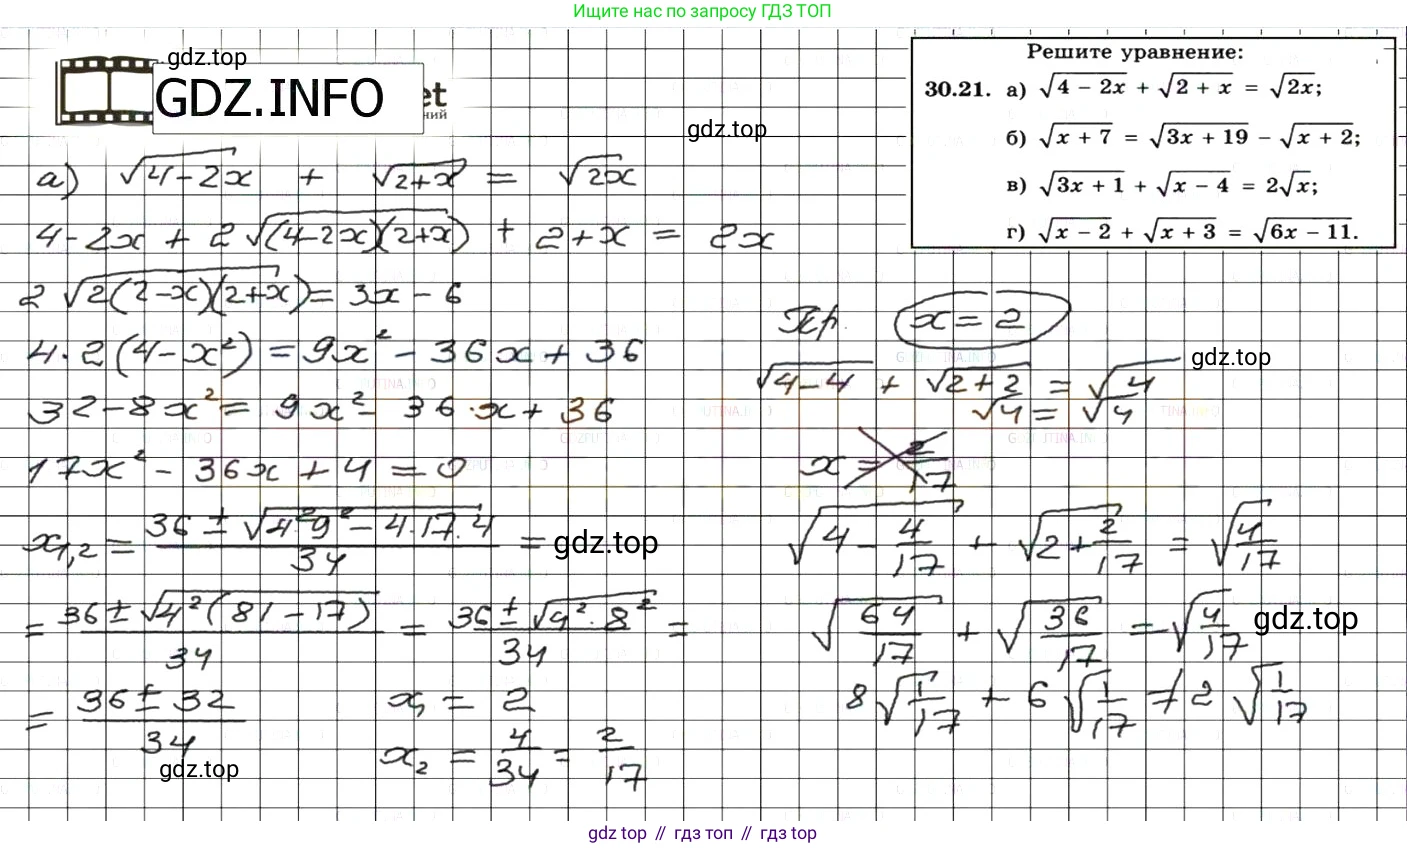 Ищите нас по запросу ГДЗ ТОП
gdz.top
GDZ.INFO
et
ний
gdz.top
Решите уравнение:
30.21. а) √(4 − 2x) + √(2 + x) = √(2x);
б) √(x + 7) = √(3x + 19) − √(x + 2);
в) √(3x + 1) + √(x − 4) = 2√x;
г) √(x − 2) + √(x + 3) = √(6x − 11).
а) √(4−2x) + √(2+x) = √(2x)
4−2x + 2√((4−2x)(2+x)) + 2+x = 2x
2√(2(2−x)(2+x)) = 3x − 6
4·2(4−x²) = 9x² − 36x + 36
32−8x² = 9x² − 36·x + 36
17x² − 36x + 4 = 0
x₁,₂ = (36 ± √(4²9² − 4·17·4))/34 =
gdz.top
= (36 ± √(4²(81−17)))/34 = (36 ± √(4²·8²))/34 =
= (36 ± 32)/34
x₁ = 2
x₂ = 4/34 = 2/17
gdz.top
Пр. x = 2
gdz.top
√(4−4) + √(2+2) = √4
√4 = √4
x = 2/17
√(4 − 4/17) + √(2 + 2/17) = √(4/17)
√(64/17) + √(36/17) = √(4/17)
gdz.top
8√(1/17) + 6√(1/17) ≠ 2√(1/17)
gdz top // гдз топ // гдз top